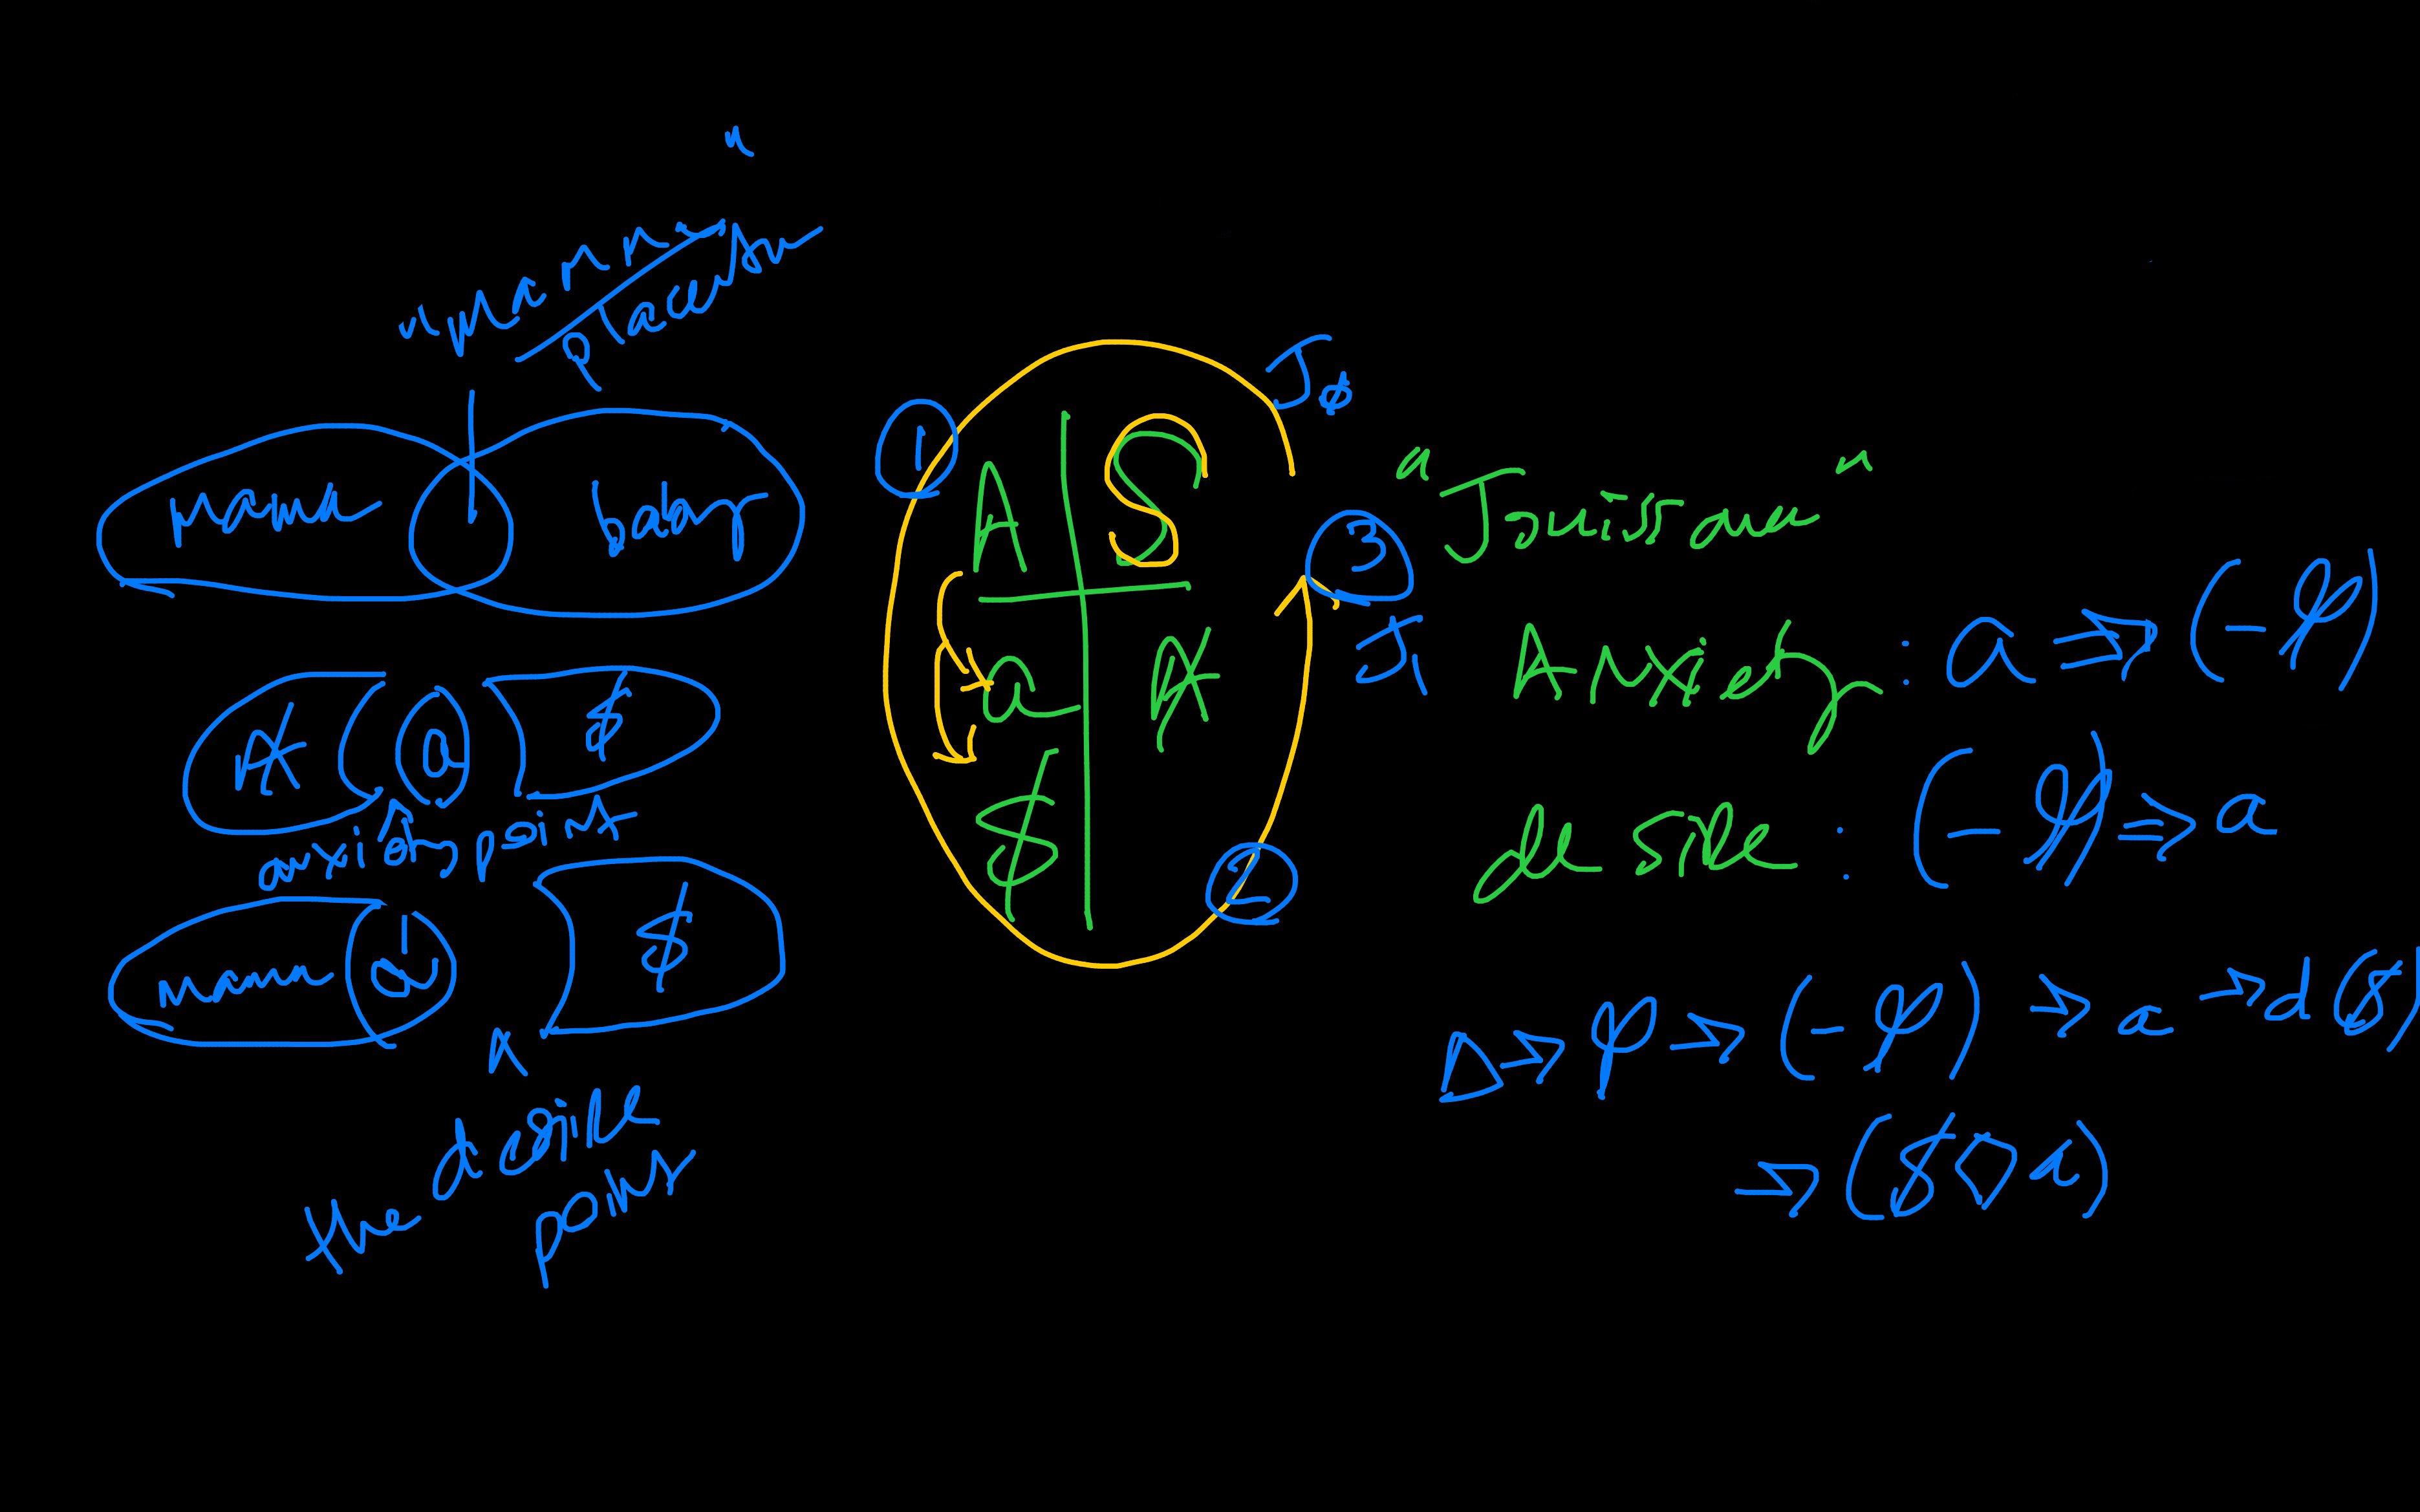 "mamma"
placenta
mama
baby
Ⱥ
a
$
anxiety point
mama
a
$
the desire
point
1
A
S
a
Ⱥ
$
2
3
Jφ
"Jouissance"
Anxiety : a ⇒ (-φ)
desire : (-φ) ⇒ a
Δ → φ → (-φ) → a → d($)
→ ($ ◇ a)